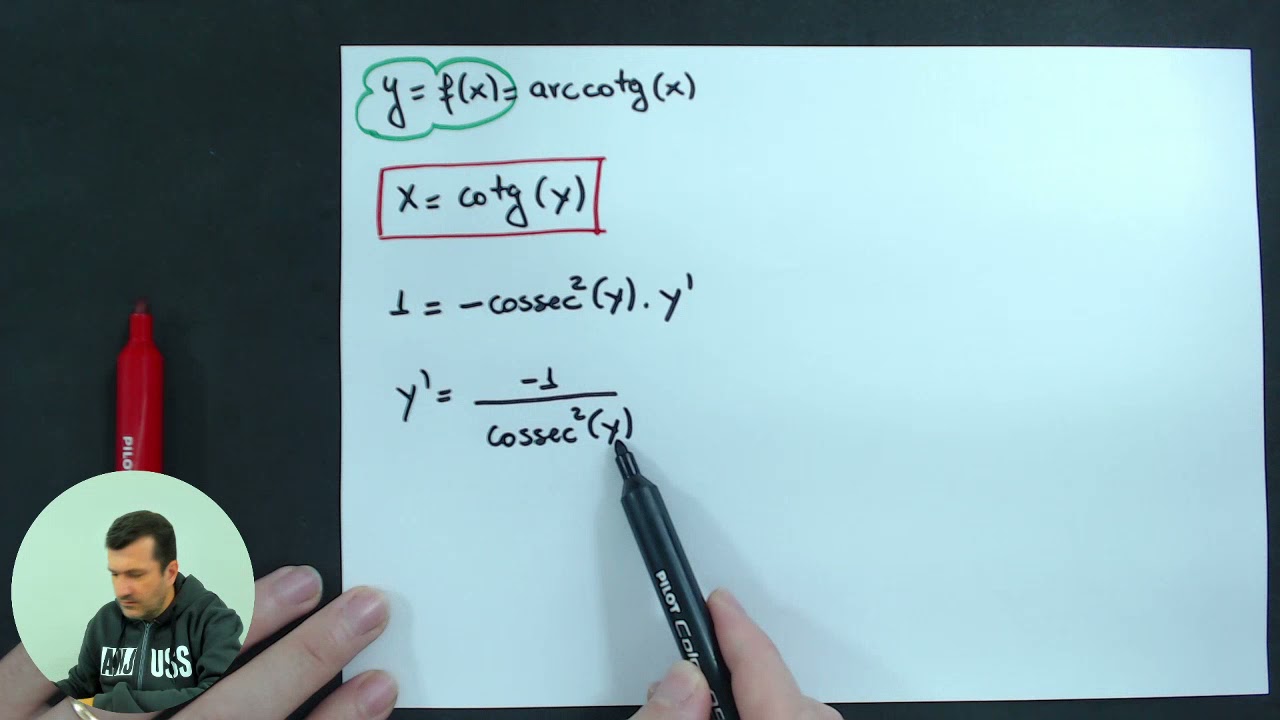 y = f(x) = arccotg(x)
x = cotg(y)
1 = -cossec²(y) . y'
y' = -1
cossec²(y)
PILOT
PILOT